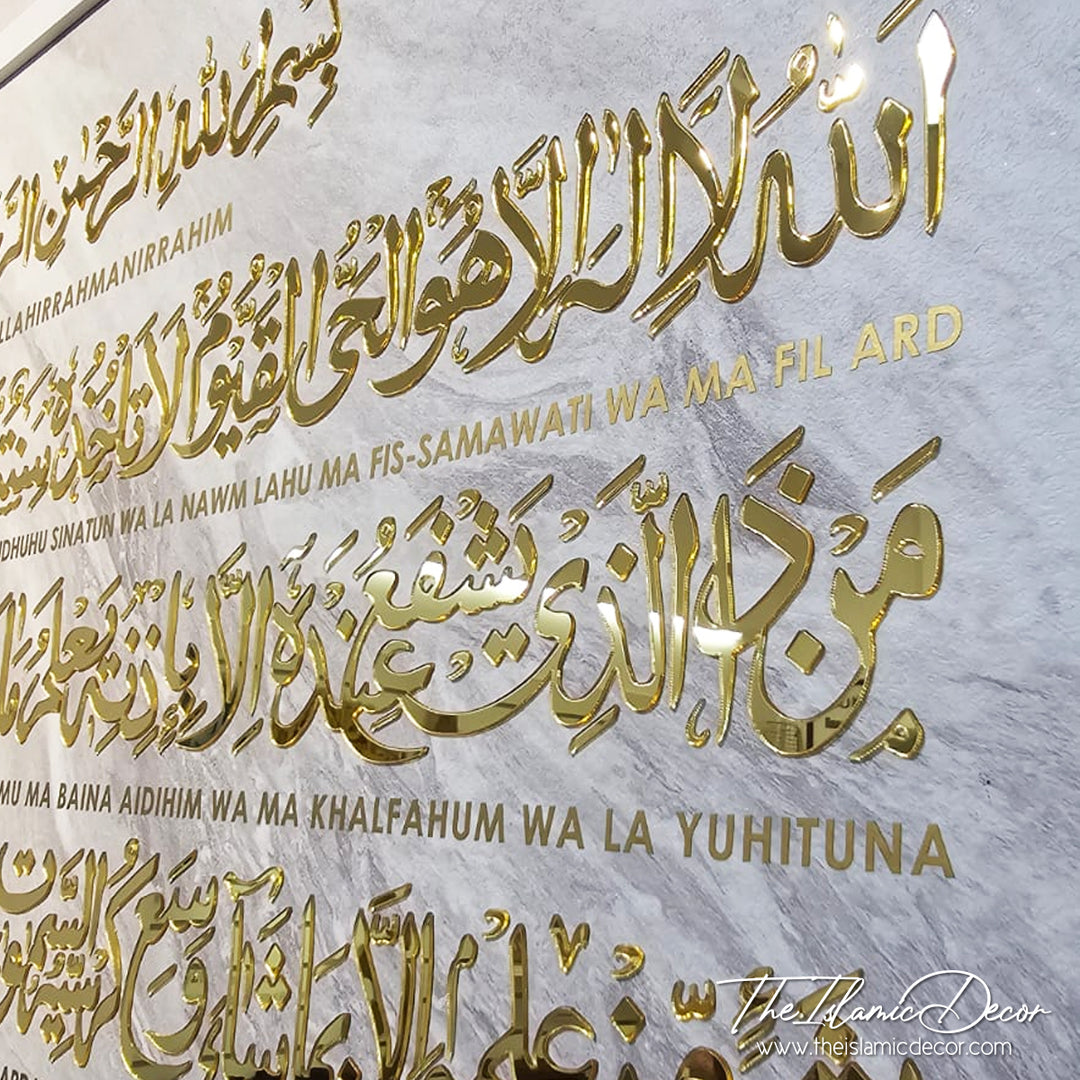 بِسْمِ اللهِ الرَّحْمٰنِ
LLAHIRRAHMANIRRAHIM
اللهُ لَا إِلٰهَ إِلَّا هُوَ الْحَيُّ الْقَيُّومُ لَا تَأْخُذُهُ سِنَةٌ
UDHUHU SINATUN WA LA NAWM LAHU MA FIS-SAMAWATI WA MA FIL ARD
مَنْ ذَا الَّذِي يَشْفَعُ عِنْدَهُ إِلَّا بِإِذْنِهِ يَعْلَمُ مَا
MU MA BAINA AIDIHIM WA MA KHALFAHUM WA LA YUHITUNA
عِلْمِهِ إِلَّا بِمَا شَاءَ وَسِعَ كُرْسِيُّهُ السَّمٰوَاتِ
ARD
The Islamic Decor
www.theislamicdecor.com